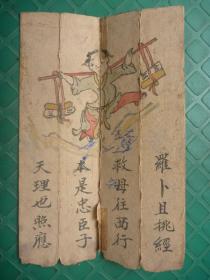 羅卜且挑經
救母往西行
本是忠臣子
天理也照應